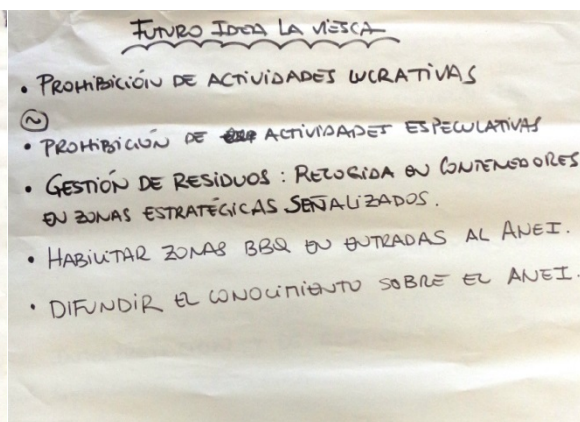 FUTURO IDEA LA VIESCA
• PROHIBICIÓN DE ACTIVIDADES LUCRATIVAS
~
• PROHIBICIÓN DE ACTIVIDADES ESPECULATIVAS
• GESTIÓN DE RESIDUOS : RECOGIDA EN CONTENEDORES
EN ZONAS ESTRATÉGICAS SEÑALIZADOS.
• HABILITAR ZONAS BBQ EN ENTRADAS AL ANEI.
• DIFUNDIR EL CONOCIMIENTO SOBRE EL ANEI.